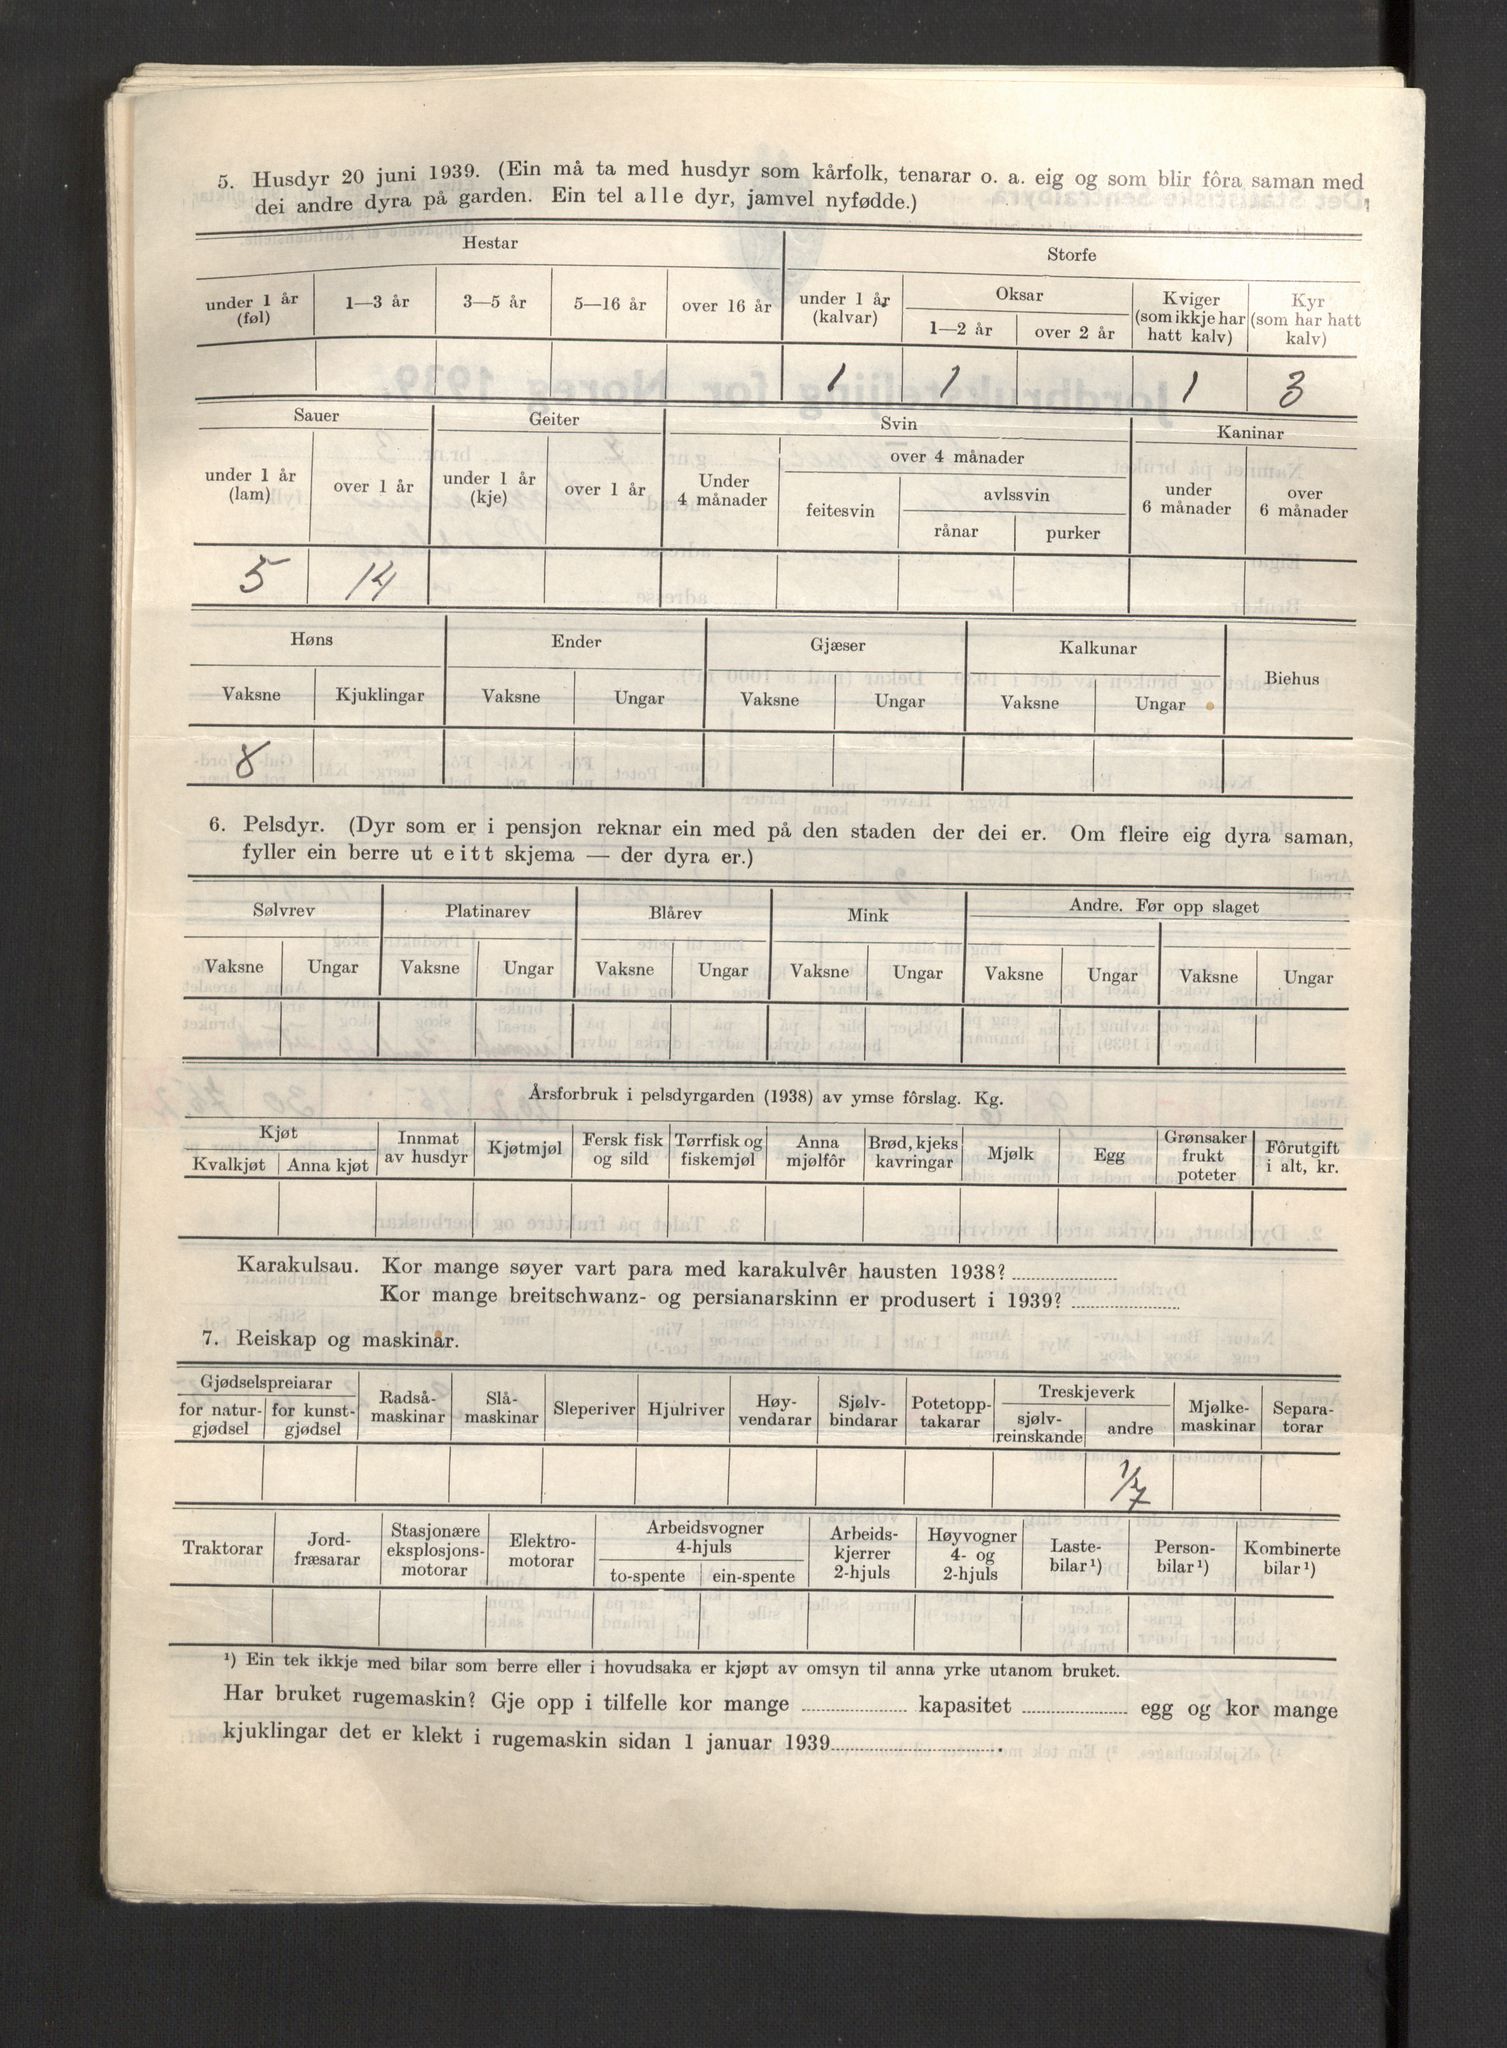 5. Husdyr 20 juni 1939. (Ein må ta med husdyr som kårfolk, tenarar o. a. eig og som blir fôra saman med
dei andre dyra på garden. Ein tel alle dyr, jamvel nyfødde.)
Hestar Storfe
under 1 år (føl) 1—3 år 3—5 år 5—16 år over 16 år under 1 år (kalvar) Oksar 1—2 år over 2 år Kviger (som ikkje har hatt kalv) Kyr (som har hatt kalv)
1 1 1 3
Sauer Geiter Svin Kaninar
under 1 år (lam) over 1 år under 1 år (kje) over 1 år Under 4 månader over 4 månader feitesvin avlssvin rånar purker under 6 månader over 6 månader
5 14
Høns Ender Gjæser Kalkunar Biehus
Vaksne Kjuklingar Vaksne Ungar Vaksne Ungar Vaksne Ungar
8
6. Pelsdyr. (Dyr som er i pensjon reknar ein med på den staden der dei er. Om fleire eig dyra saman,
fyller ein berre ut eitt skjema — der dyra er.)
Sølvrev Platinarev Blårev Mink Andre. Før opp slaget
Vaksne Ungar Vaksne Ungar Vaksne Ungar Vaksne Ungar Vaksne Ungar Vaksne Ungar
Årsforbruk i pelsdyrgarden (1938) av ymse fôrslag. Kg.
Kjøt Kvalkjøt Anna kjøt Innmat av husdyr Kjøtmjøl Fersk fisk og sild Tørrfisk og fiskemjøl Anna mjølfôr Brød, kjeks kavringar Mjølk Egg Grønsaker frukt poteter Fôrutgift i alt, kr.
Karakulsau. Kor mange søyer vart para med karakulvêr hausten 1938?
Kor mange breitschwanz- og persianarskinn er produsert i 1939?
7. Reiskap og maskinar.
Gjødselspreiarar for natur-gjødsel for kunst-gjødsel Radså-maskinar Slå-maskinar Sleperiver Hjulriver Høy-vendarar Sjølv-bindarar Potetopp-takarar Treskjeverk sjølv-reinskande andre Mjølke-maskinar Separa-torar
1/7
Traktorar Jord-fræsarar Stasjonære eksplosjons-motorar Elektro-motorar Arbeidsvogner 4-hjuls to-spente ein-spente Arbeids-kjerrer 2-hjuls Høyvogner 4- og 2-hjuls Laste-bilar ¹) Person-bilar ¹) Kombinerte bilar ¹)
¹) Ein tek ikkje med bilar som berre eller i hovudsaka er kjøpt av omsyn til anna yrke utanom bruket.
Har bruket rugemaskin? Gje opp i tilfelle kor mange kapasitet egg og kor mange
kjuklingar det er klekt i rugemaskin sidan 1 januar 1939.